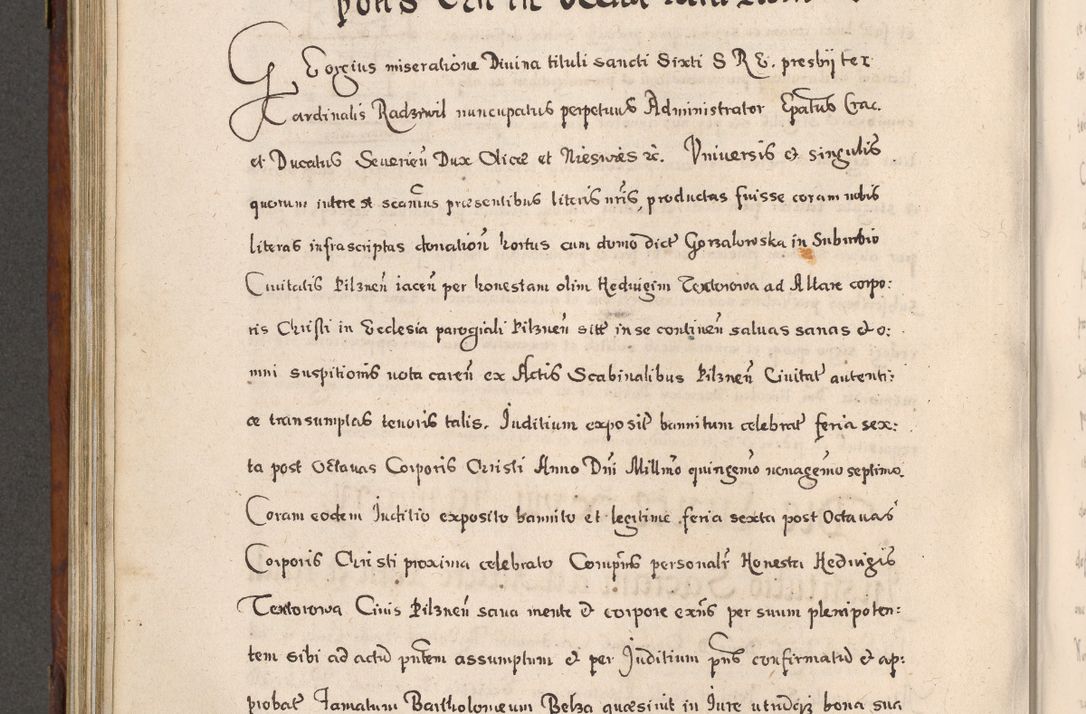 Georgius miseratione Divina tituli sancti Sixti S R E. presbijter
Cardinalis Radziwil nuncupatus perpetuus Administrator Epatus Crac.
et Ducatus Severien Dux Olicæ et Nieswies etc. Universis et singulis
quorum interest seu in præsentibus literis nris, productas fuisse coram nobis
literas infrascriptas donation hortus cum domo dict Gorzalowska in Suburbio
Civitatis Pilznen iacen per honestam olim Hedvigim Textorowa ad Altare corpo:
ris Christi in Ecclesia parogiali Pilznen sitt in se continen salvas sanas et o:
mni suspitionis nota caren ex Actis Scabinalibus Pilznen Civitat autenti:
ce transumptas tenoris talis. Juditium exposit bannitum celebrat feria sex:
ta post Octavas Corporis Christi Anno Dni Millmo quingemo nonagemo septimo.
Coram eodem Juditio exposito bannito et legitime feria sexta post Octavas
Corporis Christi proxima celebrato Comprns personalr Honesta Hedvigis
Textorowa Civis Pilznen sana mente et corpore exns per suum plenipoten:
tem sibi ad actu pntem assumptum et per Juditium pns confirmatu et ap:
probat famatum Bartholomeum Belza quæsivit in Jure utrumque bona sua